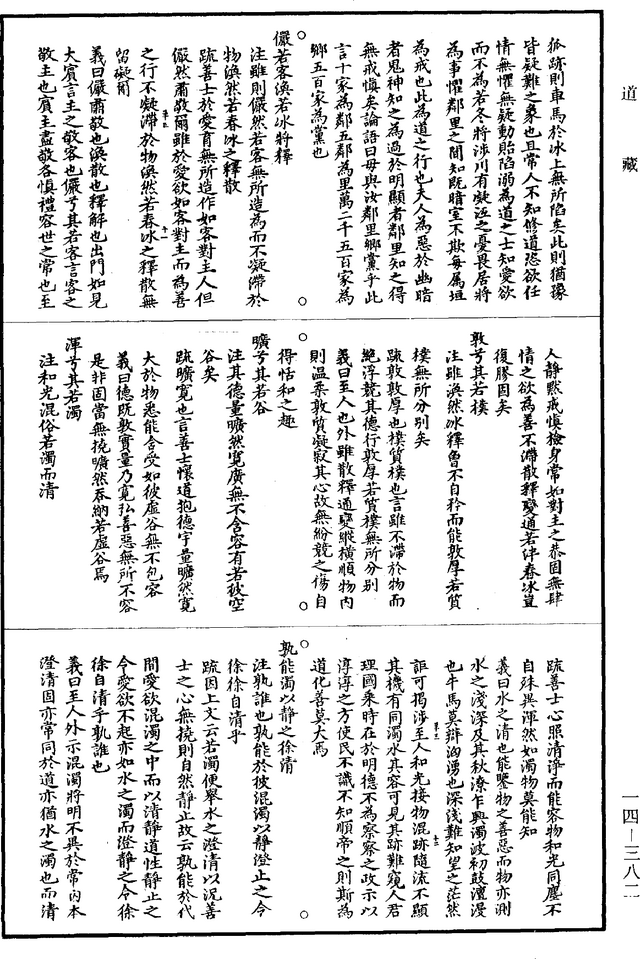 道藏
狐跡則車馬於冰上無所陷矣此則猶豫
皆疑難之象也且常人不知修道恣欲任
情無懼無疑動貽陷溺為道之士知愛欲
而不為若冬將涉川有凝沍之憂畏居將
為事懼鄰里之間知既暗室不欺每属垣
為戒也此為道之行也夫人為惡於幽暗
者鬼神知之為過於明顯者鄰里知之得
無戒慎矣論語曰毋與汝鄰里鄉黨乎此
言十家為鄰五鄰為里萬二千五百家為
鄉五百家為黨也
儼若客渙若冰將釋
注雖則儼然若客無所造為而不凝滯於
物渙然若春冰之釋散
疏善士於愛育無所造作如客對主人但
儼然肅敬爾雖於愛欲如客對主而為善
之行不凝滯於物渙然若春冰之釋散無
留礙爾
義曰儼肅敬也渙散也釋解也出門如見
大賓言主之敬客也儼兮其若客言客之
敬主也賓主盡敬各慎禮容世之常也至
人靜默戒慎檢身常如對主之恭固無肆
情之欲為善不滯散釋變通若泮春冰豈
復膠固矣
敦兮其若樸
注雖渙然冰釋曾不自矜而能敦厚若質
樸無所分別矣
疏敦敦厚也樸質樸也言雖不滯於物而
絕浮競其德行敦厚若質樸無所分別
義曰至人也外雖散釋通變縱橫順物內
則溫柔敦質凝寂其心故無紛競之傷自
得恬和之趣
曠兮其若谷
注其德量曠然寬廣無不含容有若彼空
谷矣
疏曠寬也言善士懷道抱德宇量曠然寬
大於物悉能含受如彼虛谷無不包容
義曰德既敦實量乃寬弘善惡無所不容
是非固當無撓曠然吞納若虛谷焉
渾兮其若濁
注和光混俗若濁而清
疏善士心照清淨而能容物和光同塵不
自殊異渾然如濁物莫能知
義曰水之清也能鑒物之善惡而物亦測
水之淺深及其秋潦乍興濁波初鼓澶漫
也牛馬莫辯洶湧也深淺難知望之茫然
詎可揭涉至人和光接物混跡隨流不顯
其機有同濁水其容可見其跡難窺人君
理國乘時在於明德不為察察之政示以
淳淳之方使民不識不知順帝之則斯為
道化善莫大焉
孰能濁以靜之徐清
注孰誰也孰能於彼混濁以靜澄止之令
徐徐自清乎
疏因上文云若濁便舉水之澄清以況善
士之心無撓則自然靜止故云孰能於代
間愛欲混濁之中而以清靜道性靜止之
令愛欲不起亦如水之濁而澄靜之令徐
徐自清乎孰誰也
義曰至人外示混濁將明不異於常內本
澄清固亦常同於道亦猶水之濁也而清
一四—三八二